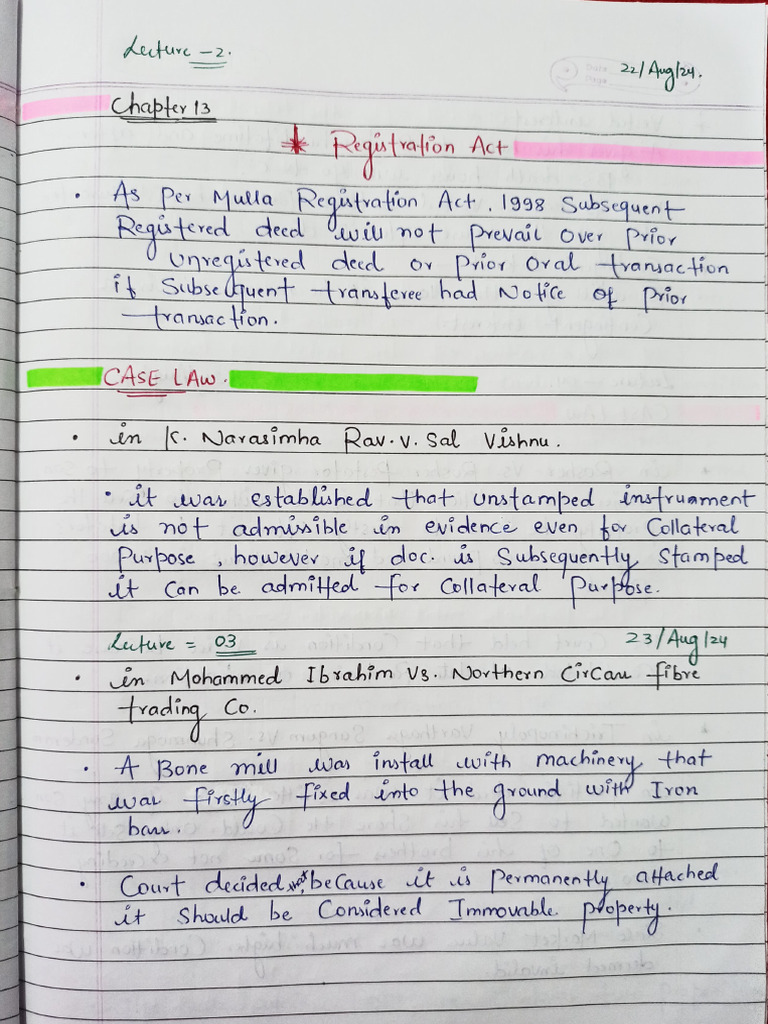 Lecture - 2.
22/Aug/24.
Chapter 13
Registration Act
• As Per Mulla Registration Act. 1998 Subsequent
Registered deed will not prevail over prior
unregistered deed or prior oral transaction
if Subsequent transferee had Notice of prior
transaction.
CASE LAW.
• in K. Narasimha Rav. v. Sal Vishnu.
• it was established that unstamped instruament
is not admissible in evidence even for Collateral
Purpose, however if doc. is Subsequently Stamped
it can be admitted for Collateral Purpose.
Lecture = 03
23/Aug/24
• in Mohammed Ibrahim Vs. Northern CirCars fibre
trading Co.
• A Bone mill was install with machinery that
was firstly fixed into the ground with Iron
bars.
• Court decided that, because it is permanently attached
it should be Considered Immovable property.